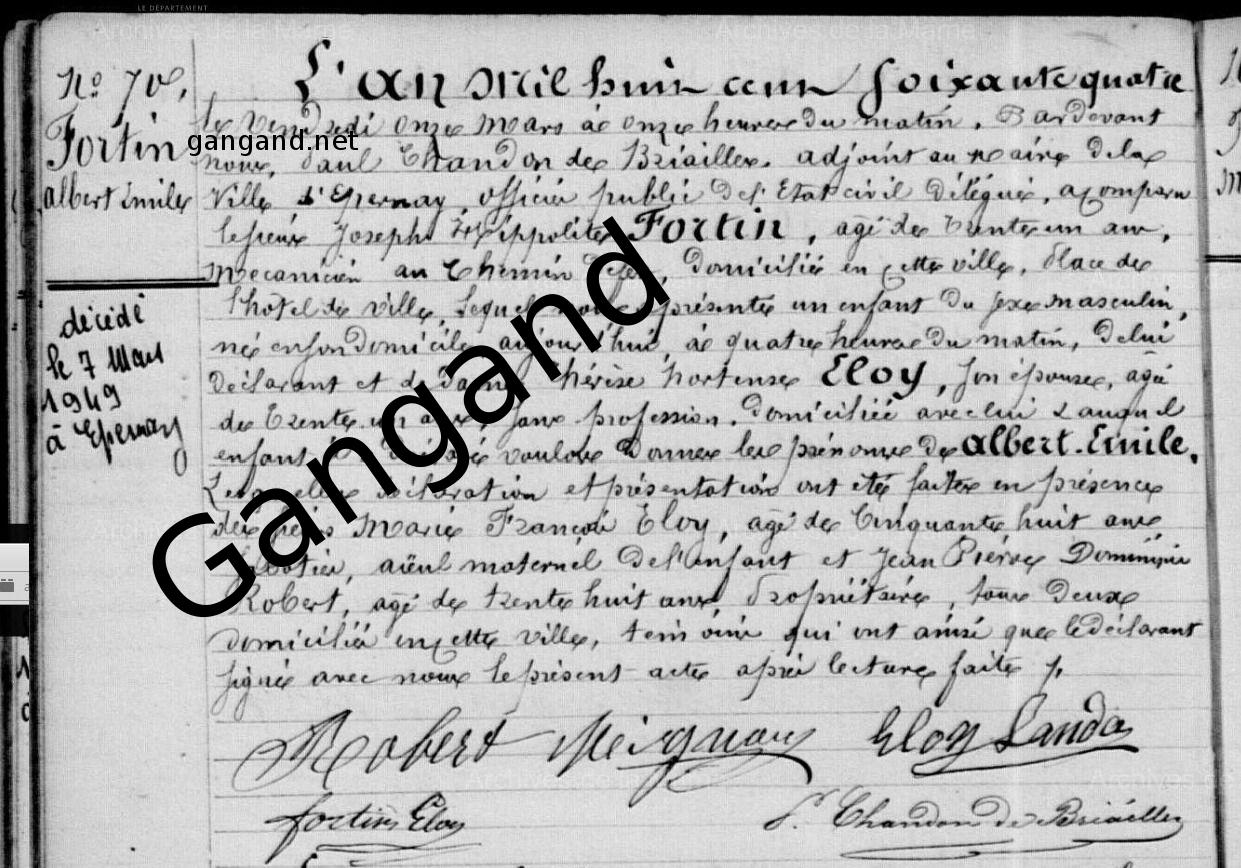 LE DÉPARTEMENT
Archives de la Marne
Archives de la Marne
N° 70.
Fortin
albert Emile
décédé
le 7 Mars
1949
à Epernay
L'an mil huit cent soixante quatre
le Vendredi onze mars à onze heures du matin, Pardevant
nous, Paul Chandon de Briailles, adjoint au maire de la
Ville d'Epernay, officier public de l'Etat civil délégué, a comparu
le sieur Joseph Hippolite Fortin, agé de trente un ans,
mecanicien au Chemin de fer, domicilié en cette ville, Place de
l'hôtel de ville, lequel nous a présenté un enfant du sexe masculin,
né en son domicile aujourd'hui, à quatre heures du matin, de lui
Déclarant et de dame Thérèse hortense Eloy, son épouse, agée
de trente un ans, sans profession, domiciliée avec lui & auquel
enfant il a déclaré vouloir Donner les prénoms de albert-Emile.
Lesquelles déclaration et présentation ont été faites en présence
des sieurs Marie François Eloy, agé de Cinquante huit ans
sabotier, aïeul maternel de l'enfant et Jean Pierre Dominique
Robert, agé de trente huit ans, Propriétaire, tous deux
domiciliés en cette ville, témoins qui ont ainsi que le déclarant
signé avec nous le présent acte après lecture faite /.
Robert Meignan Eloy Landa
fortin Eloy
P. Chandon de Briailles
gangand.net
Gangand